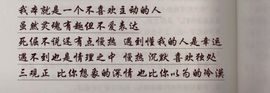 我本就是一个不喜欢主动的人
虽然灵魂有趣但不爱表达
死倔不说还有点慢热 遇到懂我的人是幸运
遇不到也是情理之中 慢热 沉默 喜欢独处
三观正 比你想象的深情 也比你以为的冷漠